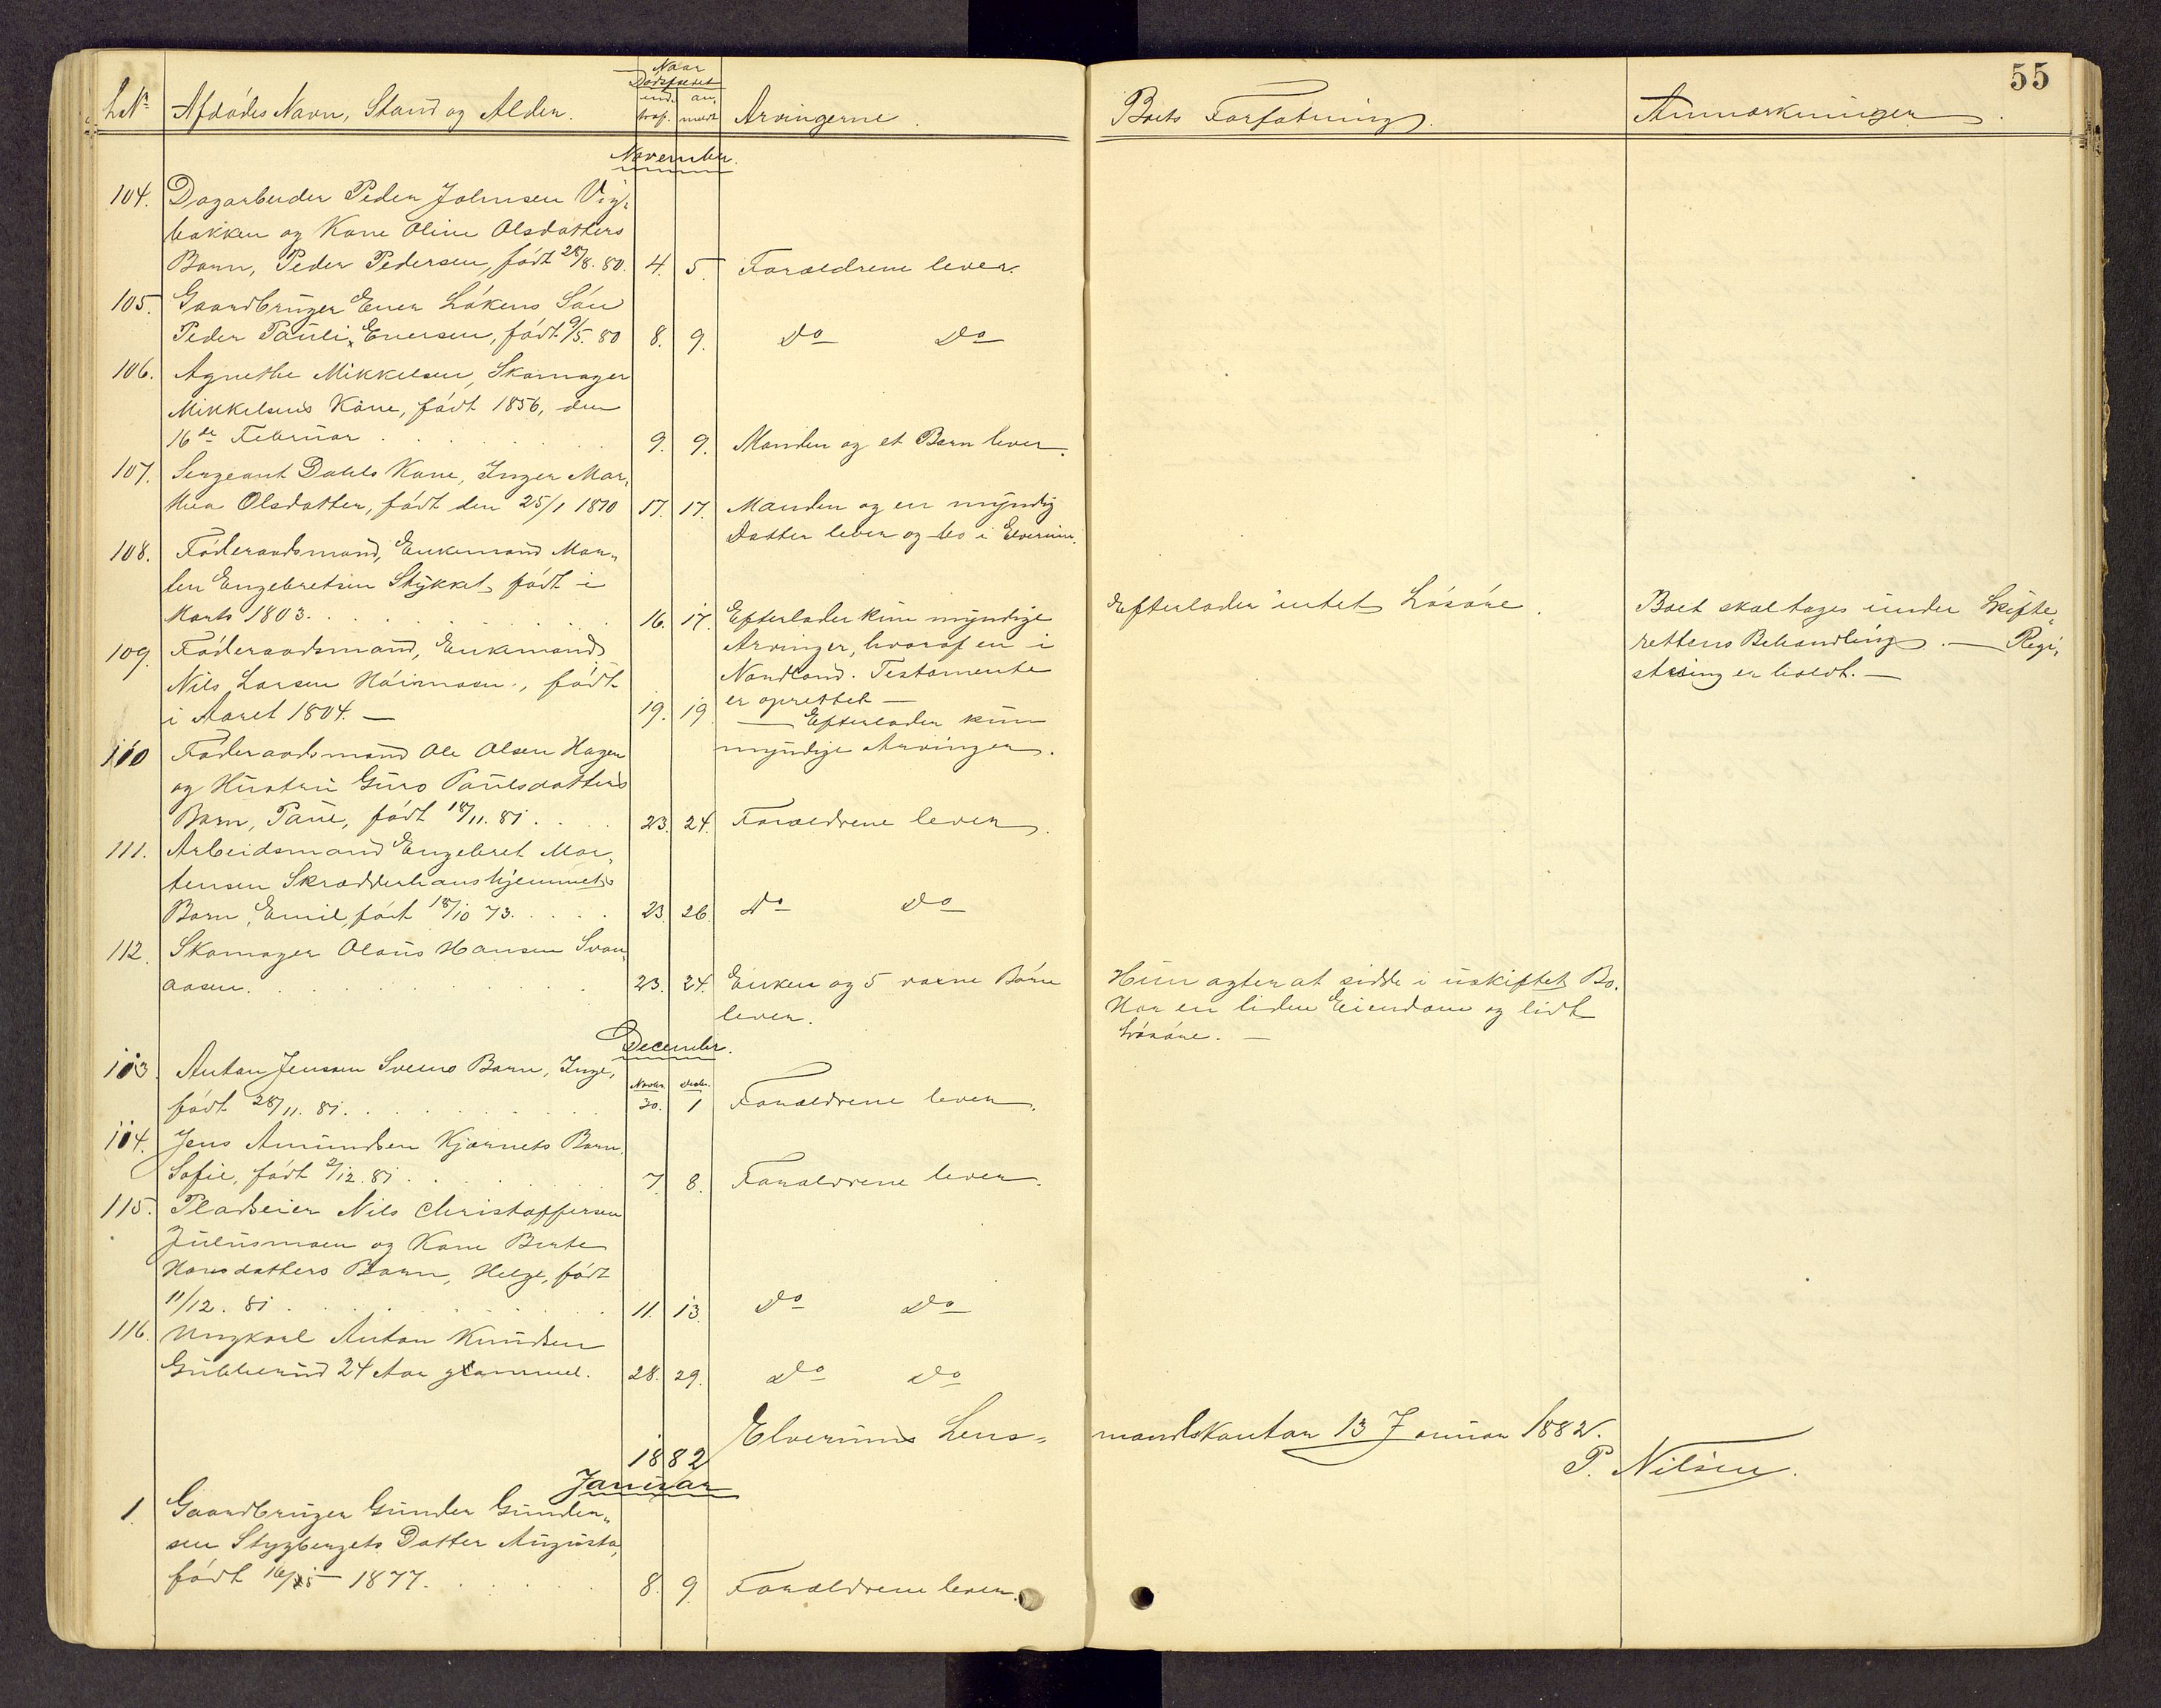 55
L.№ Afdødes Navn, Stand og Alder. Naar Dødsfaldet indtraf. anmeldt Arvingerne. Boets Forfatning. Anmærkninger.
November.
104. Dagarbeider Peder Johnsen Vig-
bakken og Kone Oline Olsdatters
Barn, Peder Pedersen, født 28/8. 80. 4. 5. Forældrene lever.
105. Gaardbruger Ener Løkens Søn
Peder Pauli Enersen, født 9/5. 80 8. 9. Do Do
106. Agnethe Mikkelsen, Skomager
Mikkelsens Kone, født 1856, den
16de Februar 9. 9. Manden og et Barn lever.
107. Sergeant Dahls Kone, Inger Mar-
thea Olsdatter, født den 25/1 1810 17. 17. Manden og en myndig
Datter lever og bo i Elverum.
108. Føderaadsmand, Enkemand Mor-
ten Engebretsen Stykket, født i
Marts 1803. 16. 17. Efterlader kun myndige
Arvinger, hvoraf en i
Nordland. Testamente
er oprettet —
Efterlader intet Løsøre.
Boet skal tages under Skifte-
rettens Behandling. — Regi-
string er holdt. —
109. Føderaadsmand, Enkemand
Nils Larsen Høimoen, født
i Aaret 1804. — 19. 19. — Efterlader kun
myndige Arvinger.
110 Føderaadsmand Ole Olsen Hagen
og Hustru Guro Paulsdatters
Barn, Paul, født 18/11. 81. 23. 24. Forældrene lever.
111. Arbeidsmand Engebret Mor-
tensen Skrædderhanshjemmets
Barn, Emil, født 18/10 73. 23. 26. Do Do
112. Skomager Olaus Hansen Svan-
aasen. 23. 24. Enken og 5 vorne Børn
lever.
Hun agter at sidde i uskiftet Bo.
Har en liden Eiendom og lidt
Løsøre. —
December.
113. Anton Jensen Sveens Barn, Inge, Novbr. Decbr.
født 28/11. 81. 30. 1 Forældrene lever.
114. Jens Amundsen Kjernets Barn
Sofie, født 2/12. 81. 7. 8. Forældrene lever.
115. Pladseier Nils Christoffersen
Julusmoen og Kone Berte
Hansdatters Barn, Helge, født
11/12. 81. 11. 13. Do Do
116. Ungkarl Anton Knudsen
Gubberud 24 Aar gammel. 28. 29. Do Do
Elverums Lens-mandskontor 13 Januar 1882.
P. Nilsen.
1882
Januar
1. Gaardbruger Gunder Gunder-
sen Stygbergets Datter Augusta,
født 16/5 — 1877. 8. 9. Forældrene lever.